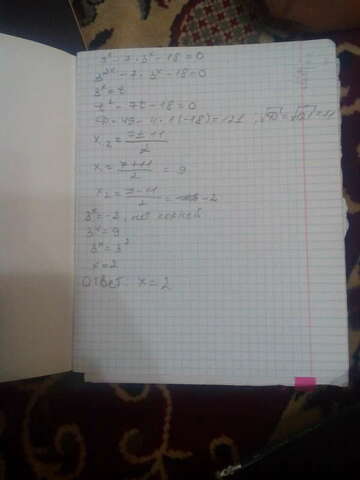 9ˣ - 7 · 3ˣ - 18 = 0
3²ˣ - 7 · 3ˣ - 18 = 0
3ˣ = t
t² - 7t - 18 = 0
D = 49 - 4 · 1(-18) = 121, √D = √121 = 11
x₁,₂ = (7 ± 11)/2
x₁ = (7+11)/2 = 9
x₂ = (7-11)/2 = -2
3ˣ = -2, нет корней
3ˣ = 9
3ˣ = 3²
x = 2
Ответ: x = 2